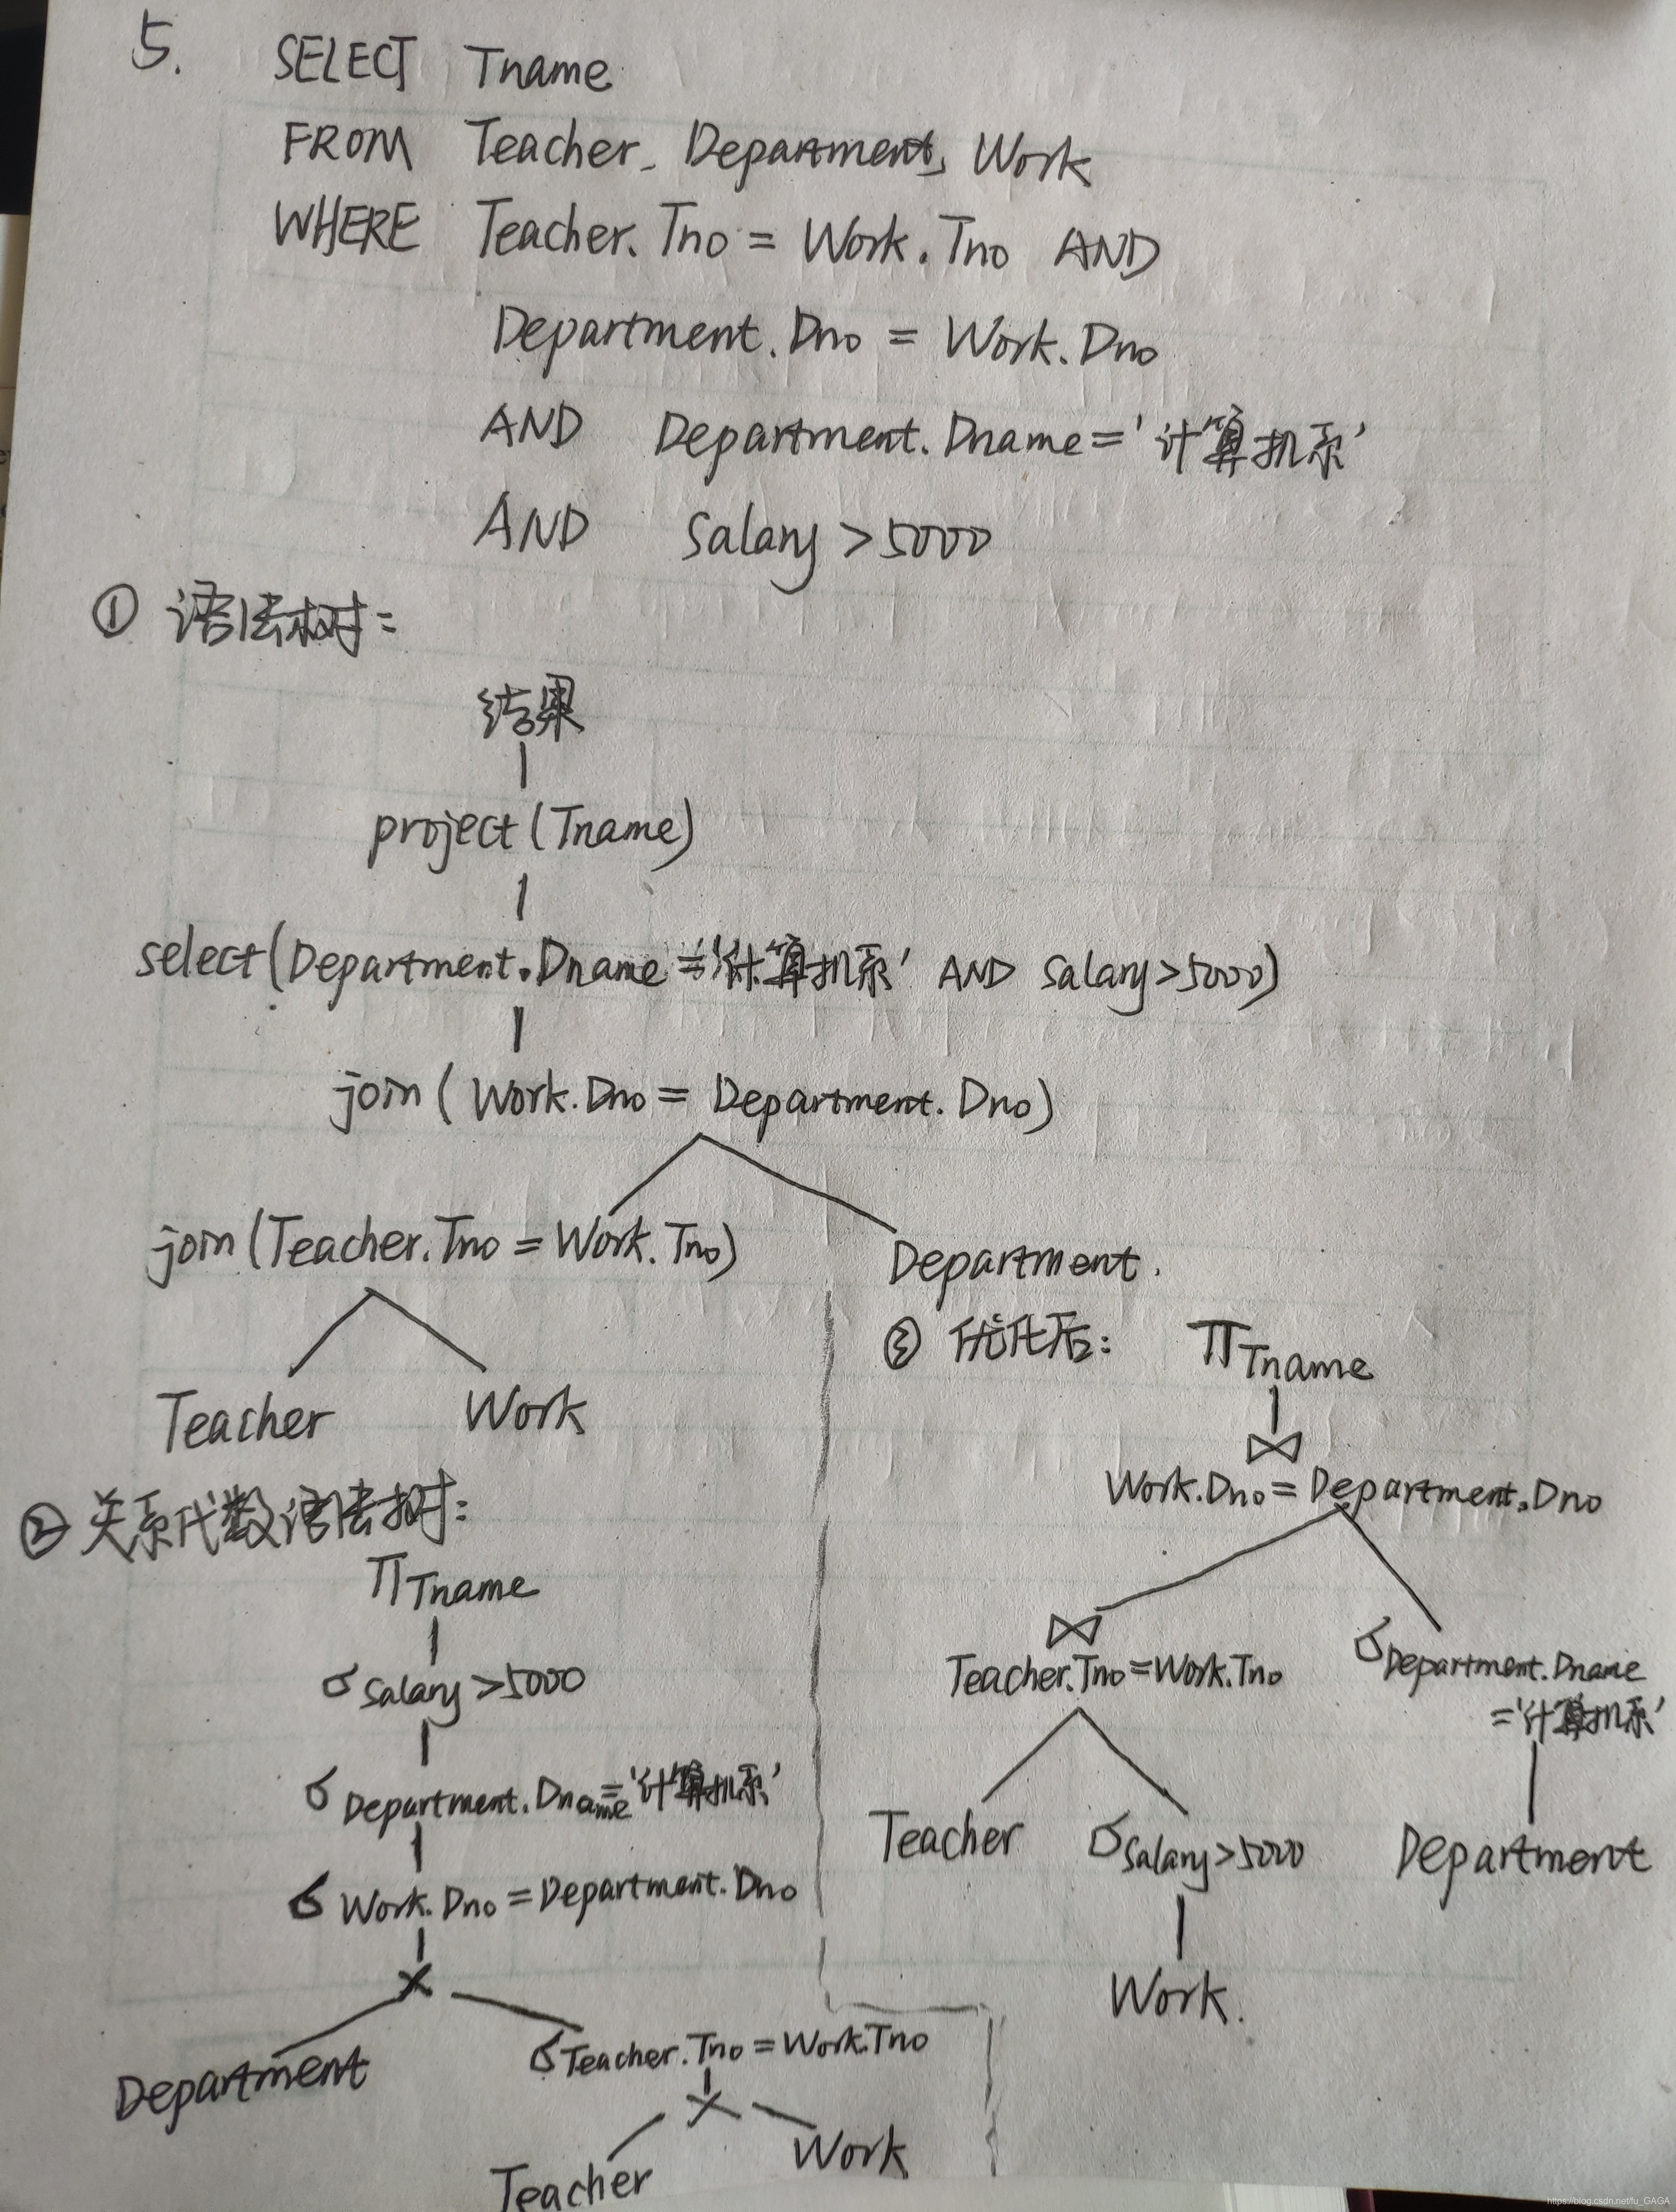 5. SELECT Tname
FROM Teacher, Department, Work
WHERE Teacher.Tno = Work.Tno AND
Department.Dno = Work.Dno
AND Department.Dname = '计算机系'
AND Salary > 5000
① 语法树:
结果
project (Tname)
select (Department.Dname = '计算机系' AND Salary > 5000)
join ( Work.Dno = Department.Dno )
join (Teacher.Tno = Work.Tno)
Department.
Teacher Work
② 关系代数语法树:
Π Tname
σ Salary > 5000
σ Department.Dname = '计算机系'
σ Work.Dno = Department.Dno
×
Department
σ Teacher.Tno = Work.Tno
×
Teacher Work
③ 优化后:
Π Tname
⋈
Work.Dno = Department.Dno
⋈
Teacher.Tno = Work.Tno
σ Department.Dname
= '计算机系'
Teacher σ Salary > 5000 Department
Work.
https://blog.csdn.net/fu_GAGA